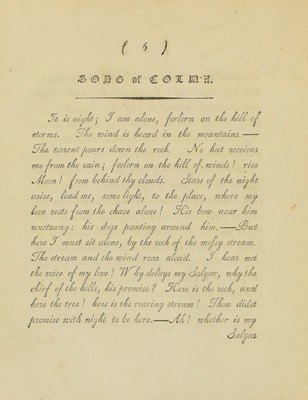 ( 5 )
SONG of COLMA.
It is night; I am alone, forlorn on the hill of
storms. The wind is heard in the mountains.—
The torrent pours down the rock. No hut receives
me from the rain; forlorn on the hill of winds! rise
Moon! from behind thy clouds. Stars of the night
arise, lead me, some light, to the place, where my
love rests from the chace alone! His bow near him
unstrung: his dogs panting around him.—But
here I must sit alone, by the rock of the mossy stream.
The stream and the wind roar aloud. I hear not
the voice of my love! Why delays my Salgar, why the
chief of the hills, his promise? Here is the rock, and
here the tree! here is the roaring stream! Thou didst
promise with night to be here.—Ah! whether is my
Salgar